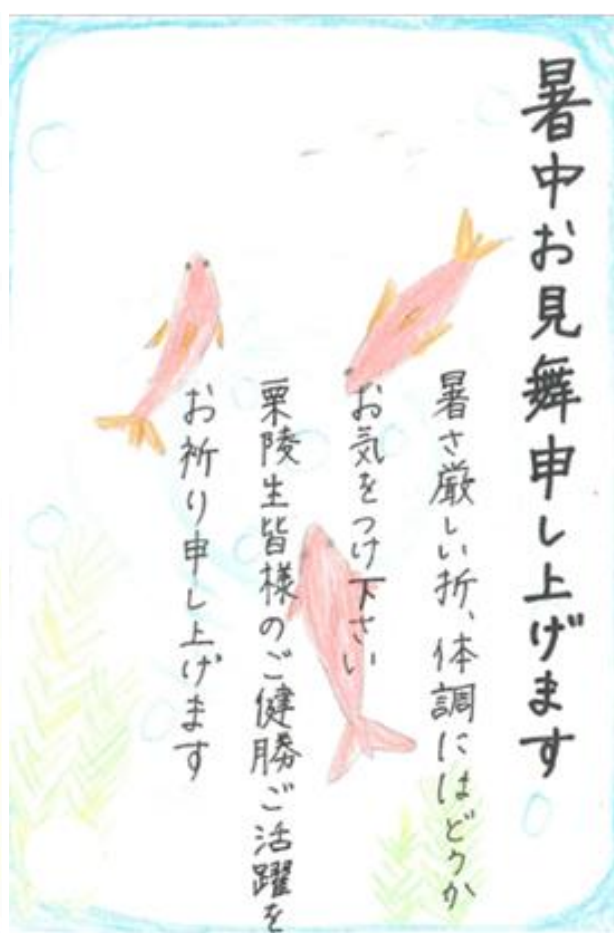 暑中お見舞申し上げます
暑さ厳しい折、体調にはどうか
お気をつけ下さい
栗陵生皆様のご健勝ご活躍を
お祈り申し上げます